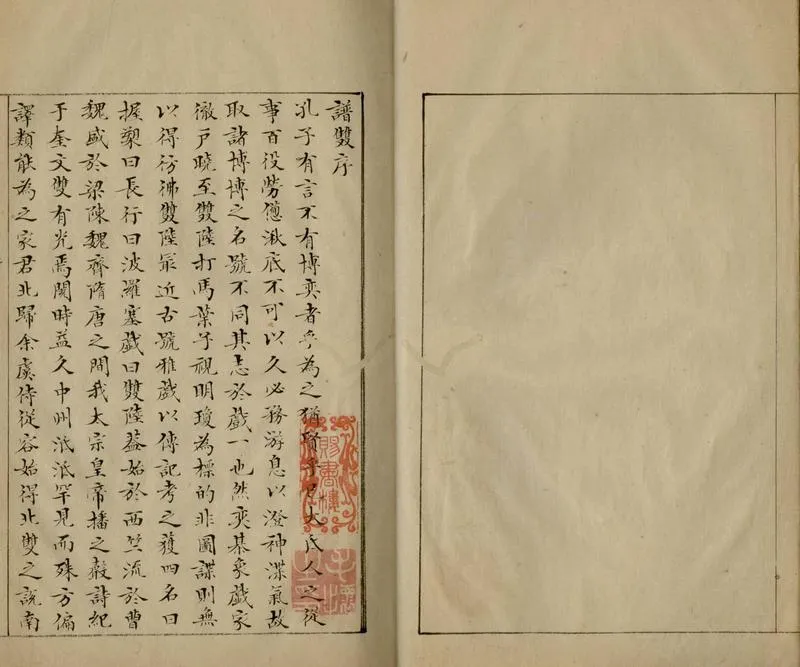 譜雙序
孔子有言不有博奕者乎為之猶賢乎已大氏人之從
事百役勞憊湫底不可以久必務游息以澄神渫氣故
取諸博博之名號不同其志於戲一也然奕棊象戲家
徹戶曉至雙陸打馬葉子視明瓊為標的非圖諜則無
以得彷彿雙陸㝡近古號雅戲以傳記考之獲四名曰
握槊曰長行曰波羅塞戲曰雙陸葢始於西竺流於曹
魏盛於梁陳魏齊隋唐之間我太宗皇帝播之聲詩紀
于奎文雙有光焉閱時益久中州泯泯罕見而殊方偏
譯類能為之家君北歸余虞侍從容始得北雙之說南
賜書樓